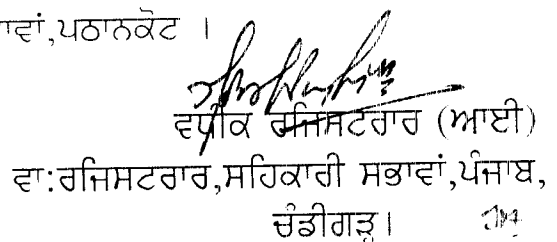 ਾਵਾਂ,ਪਠਾਨਕੋਟ ।
ਵਧੀਕ ਰਜਿਸਟਰਾਰ (ਆਈ)
ਵਾ:ਰਜਿਸਟਰਾਰ,ਸਹਿਕਾਰੀ ਸਭਾਵਾਂ,ਪੰਜਾਬ,
ਚੰਡੀਗੜ੍ਹ।